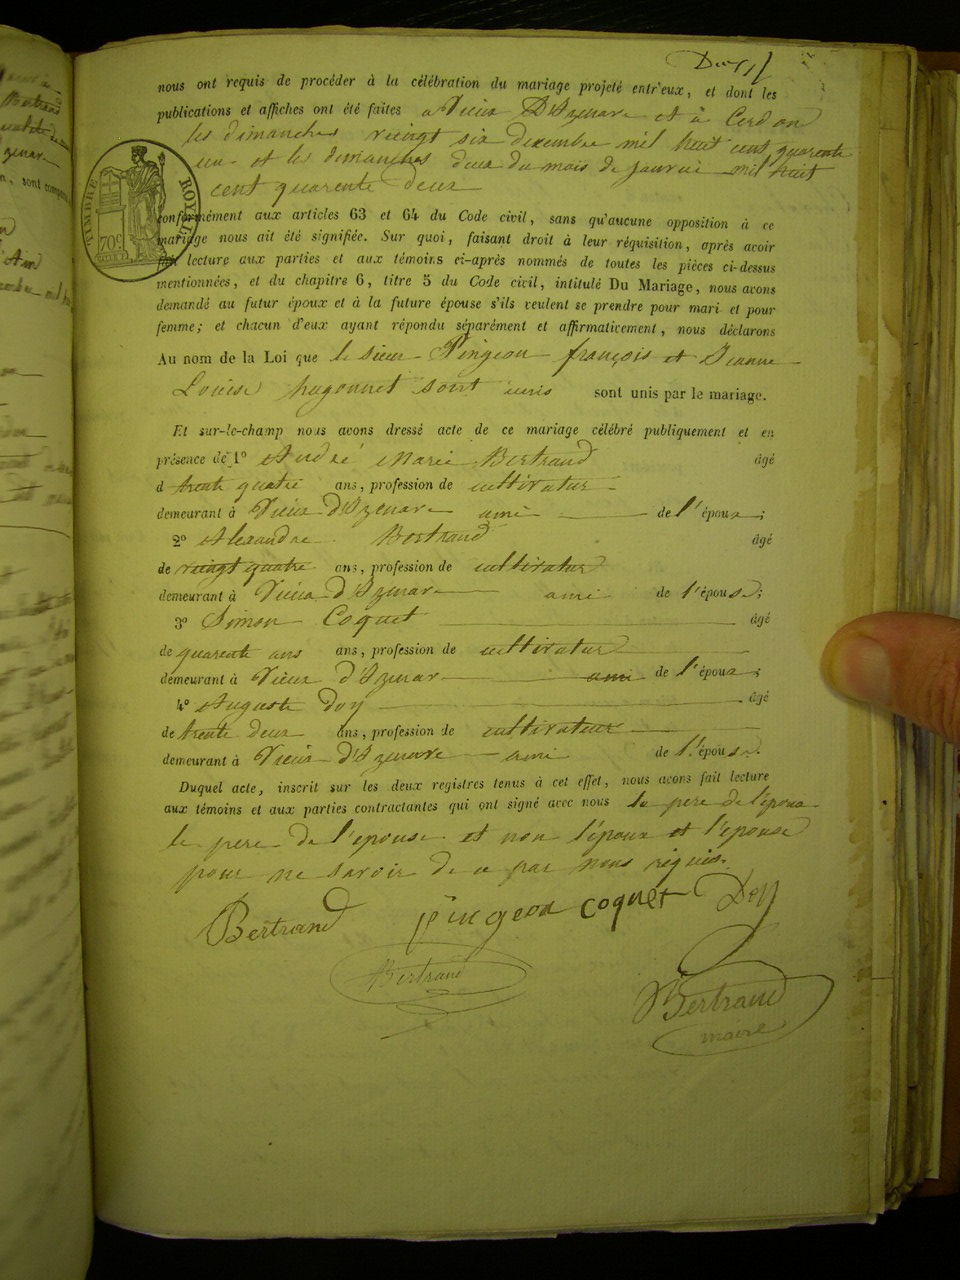 nous ont requis de procéder à la célébration du mariage projeté entr'eux, et dont les
publications et affiches ont été faites a Vieux D'Izenave et à Cerdon
les dimanches vingt six decembre mil huit cent quarente
un et les dimanches deux du mois de janvié mil huit
cent quarente deux
TIMBRE ROYAL
70c
conformément aux articles 63 et 64 du Code civil, sans qu'aucune opposition à ce
mariage nous ait été signifiée. Sur quoi, faisant droit à leur réquisition, après avoir
fait lecture aux parties et aux témoins ci-après nommés de toutes les pièces ci-dessus
mentionnées, et du chapitre 6, titre 5 du Code civil, intitulé Du Mariage, nous avons
demandé au futur époux et à la future épouse s'ils veulent se prendre pour mari et pour
femme; et chacun d'eux ayant répondu séparément et affirmativement, nous déclarons
Au nom de la Loi que le sieur Pingeon françois et Jeanne
Louise hugonnet sont unis sont unis par le mariage.
Et sur-le-champ nous avons dressé acte de ce mariage célébré publiquement et en
présence de 1° André Marie Bertrand âgé
d trente quatre ans, profession de cultivateur
demeurant à Vieux d'Izenave ami de l'époux;
2° Alexandre Bertrand âgé
de vingt quatre ans, profession de cultivateur
demeurant à Vieux d'Izenave ami de l'épouse;
3° Simon Coquet âgé
de quarente ans ans, profession de cultivateur
demeurant à Vieux d'Izenave ami de l'époux;
4° Auguste Doy âgé
de trente deux ans, profession de cultivateur
demeurant à Vieux d'Izenave ami de l'épouse.
Duquel acte, inscrit sur les deux registres tenus à cet effet, nous avons fait lecture
aux témoins et aux parties contractantes qui ont signé avec nous le pere de l'époux
le pere de l'épouse et non l'époux et l'épouse
pour ne savoir de ce par nous réquis.
Bertrand pingeon coquet Doy
Bertrand
Bertrand
maire